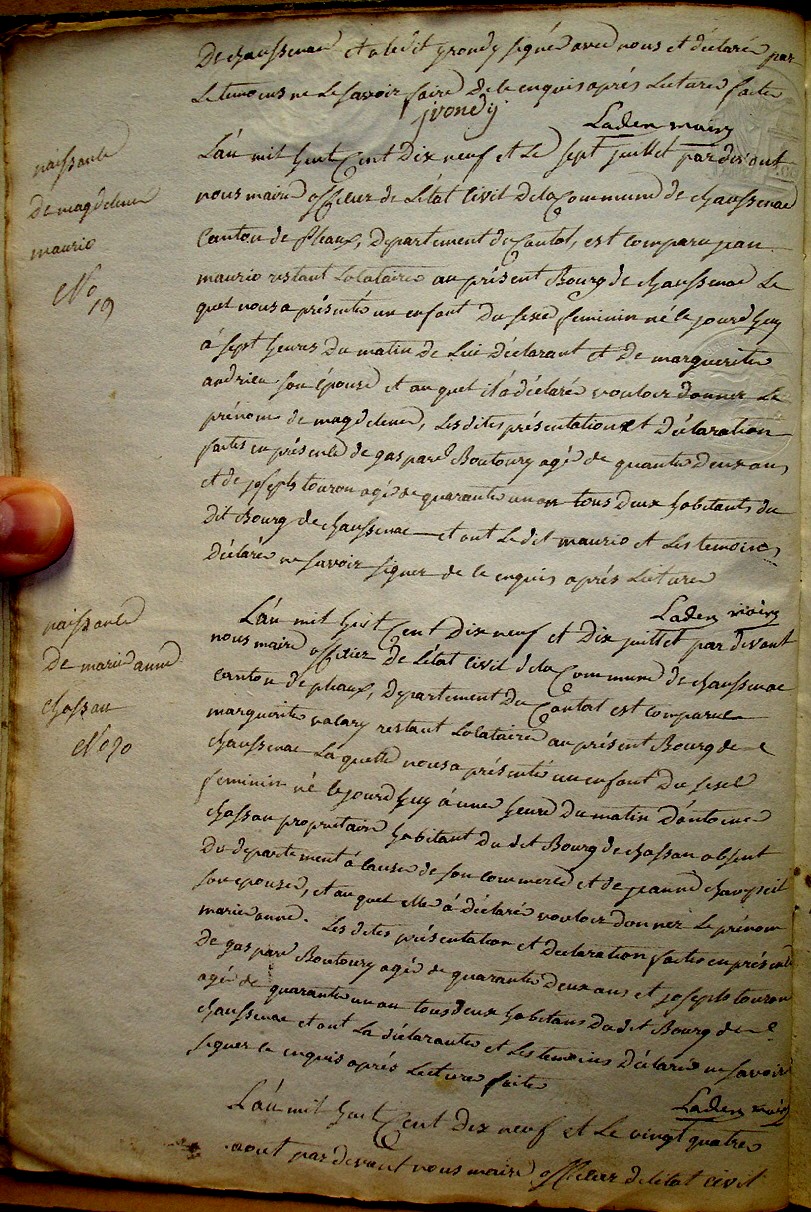 De chaussenac et a ledit jrondy signé avec nous et déclaré par
Le temoins ne Le savoir faire De ce enquis après Lecture faite
jrondij
Laden maire
naissance
De magdeleine
maurio
No 19
L'an mil huit Cent Dix neuf et Le sept juillet par devant
nous maire officier de L'état Civil de la Commune de chaussenac
Canton de pleaux, Departement du Cantal, est comparu jean
maurio restant Locataire au présent Bourg de chaussenac Le
quel nous a présenté un enfant du sexe feminin né le jourd'huy
à sept heures Du matin de Lui Déclarant et de marguerite
andrieu son épouse et au quel il a déclaré vouloir donner Le
prénom de magdeleine, Les dites présentation et Déclaration
faites en présence de gaspard Boutoury agé de quarante Deux ans
et de joseph touron agé de quarante un an tous Deux habitants du
dit Bourg de chaussenac et ont Le dit maurio et Les temoins
Déclaré ne savoir signer de ce enquis après Lecture
Laden maire
naissance
De marie anne
chassan
No 20
L'an mil huit Cent Dix neuf et Dix juillet par devant
nous maire officier de L'état Civil de la Commune de chaussenac
canton de pleaux, Departement Du Cantal est comparue
marguerite valary restant Locataire au présent Bourg de
chaussenac La quelle nous a présenté un enfant Du sexe
feminin né le jourd'huy à une heure Du matin D'antoine
chassan propriétaire habitant du dit Bourg de chassan absent
Du departement à cause de son commerce et de jeanne
son epouse, et au quel elle à déclaré vouloir donner Le prénom
marie anne. Les dites présentation et Declaration faites en présence
De gaspard Boutoury agé de quarante Deux ans et joseph touron
agé de quarante un an tous deux habitans Du dit Bourg de
chaussenac et ont La déclarante et Les temoins Déclaré ne savoir
signer ce enquis après Lecture faite
Laden maire
L'an mil huit Cent Dix neuf et Le vingt quatre
aout par devant nous maire officier de l'état civil